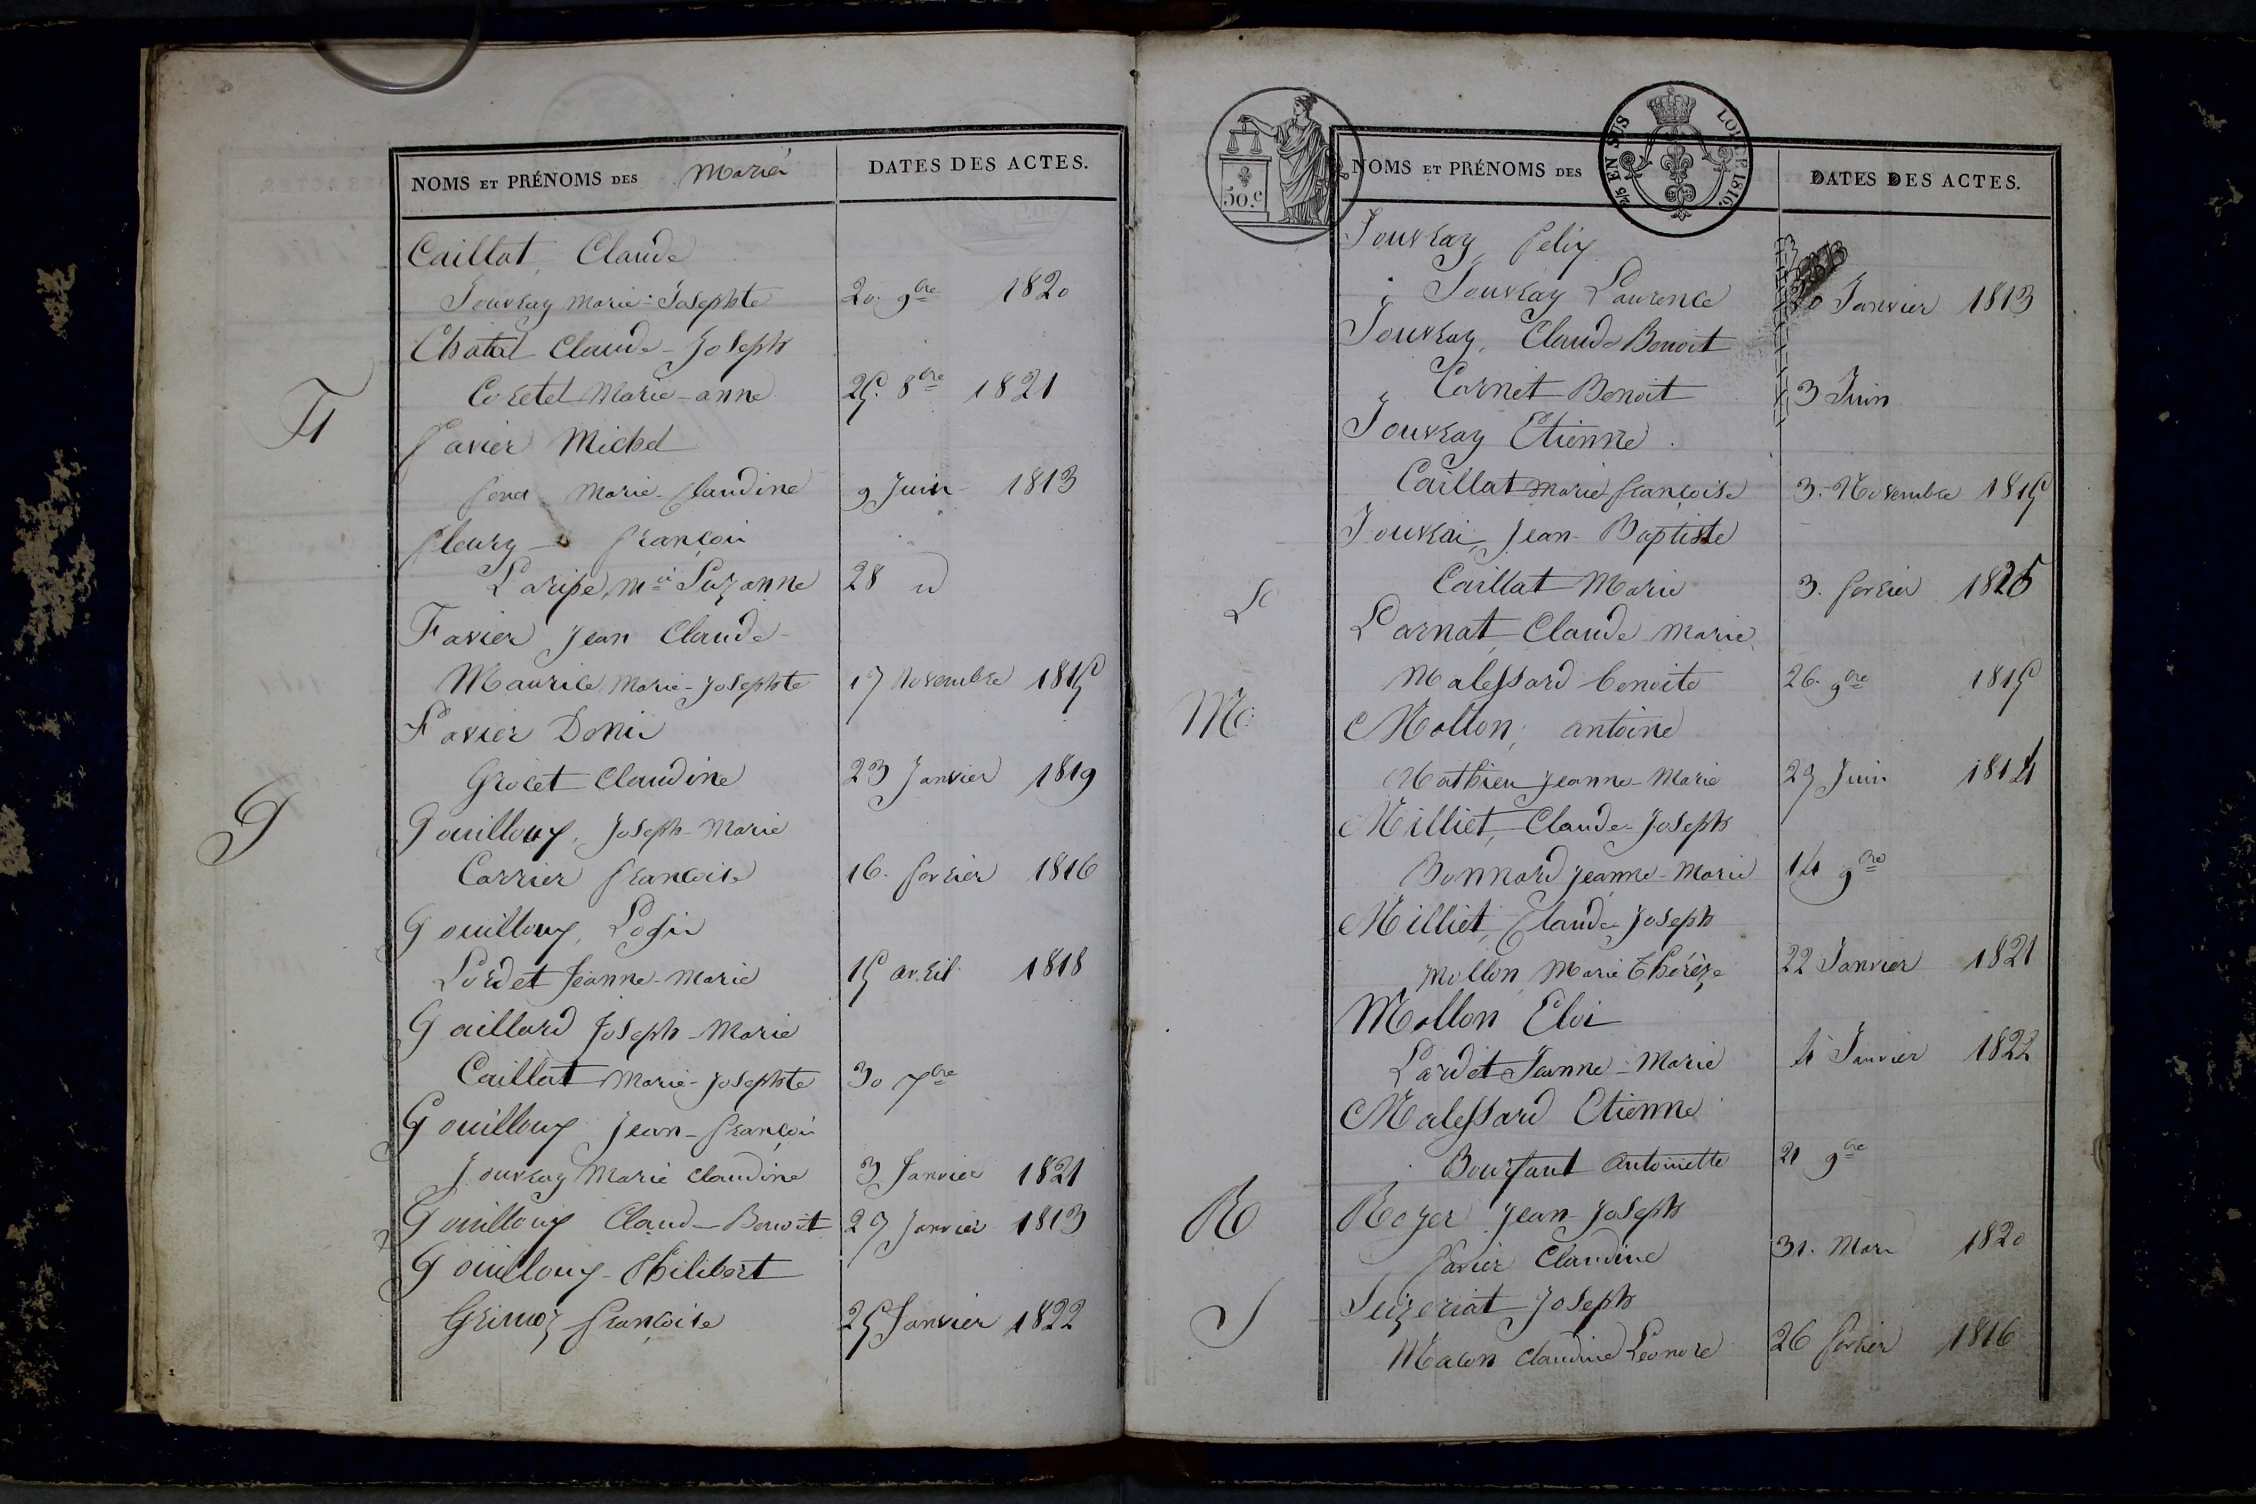 NOMS ET PRÉNOMS DES Mariés DATES DES ACTES.
Caillat, Claude
Jouvray Marie-Josephte 20. 9bre 1820
Chatel Claude-Joseph
Marie-anne 25. 8bre 1821
F
favier Michel
Marie-Claudine 9 Juin 1813
fleury françois
Laripe, Mie Suzanne 28 id
Favier Jean Claude
Maurice Marie-Josephte 17 Novembre 1815
Favier Denis
Grocet Claudine 23 Janvier 1819
G
Gouilloux, Joseph-Marie
Carrier françoise 16. fevrier 1816
Gouilloux,
Lordet Jeanne-Marie 15 avril 1818
Gaillard Joseph-Marie
Caillat Marie-Josephte 30 7bre
Gouilloux Jean-françois
Jouvray Marie Claudine 3 Janvier 1821
Gouilloux Claude-Benoit 27 Janvier 1813
Gouilloux-Philibert
Grimoz françoise 25 Janvier 1822
50.c
2/5 EN SUS LOI DE 1816.
NOMS ET PRÉNOMS DES DATES DES ACTES.
Jouvray felix
Jouvray Laurence Janvier 1813
Jouvray, Claude Benoit
Cornet Benoit 3 Juin
Jouvray Etienne
Caillat Marie françoise 3. Novembre 1815
Jouvrai, Jean-Baptiste
Caillat Marie 3. fevrier 1825
L
Larnat, Claude Marie
Malessard benoite 26. 9bre 1815
M
Mollon, antoine
Mathieu Jeanne-Marie 27 Juin 1814
Milliet, Claude-Joseph
Bonnard Jeanne-Marie 14 9bre
Milliet, Claude Joseph
Mollon, Marie Thérèze 22 Janvier 1821
Mollon Eloi
Lardet Jeanne-Marie 4 Janvier 1822
Malessard Etienne
antoinette 21 9bre
R
Royer Jean-Joseph
favier Claudine 31. Mars 1820
S
Seizeriat Joseph
Macon Claudine Léonore 26 fevrier 1816